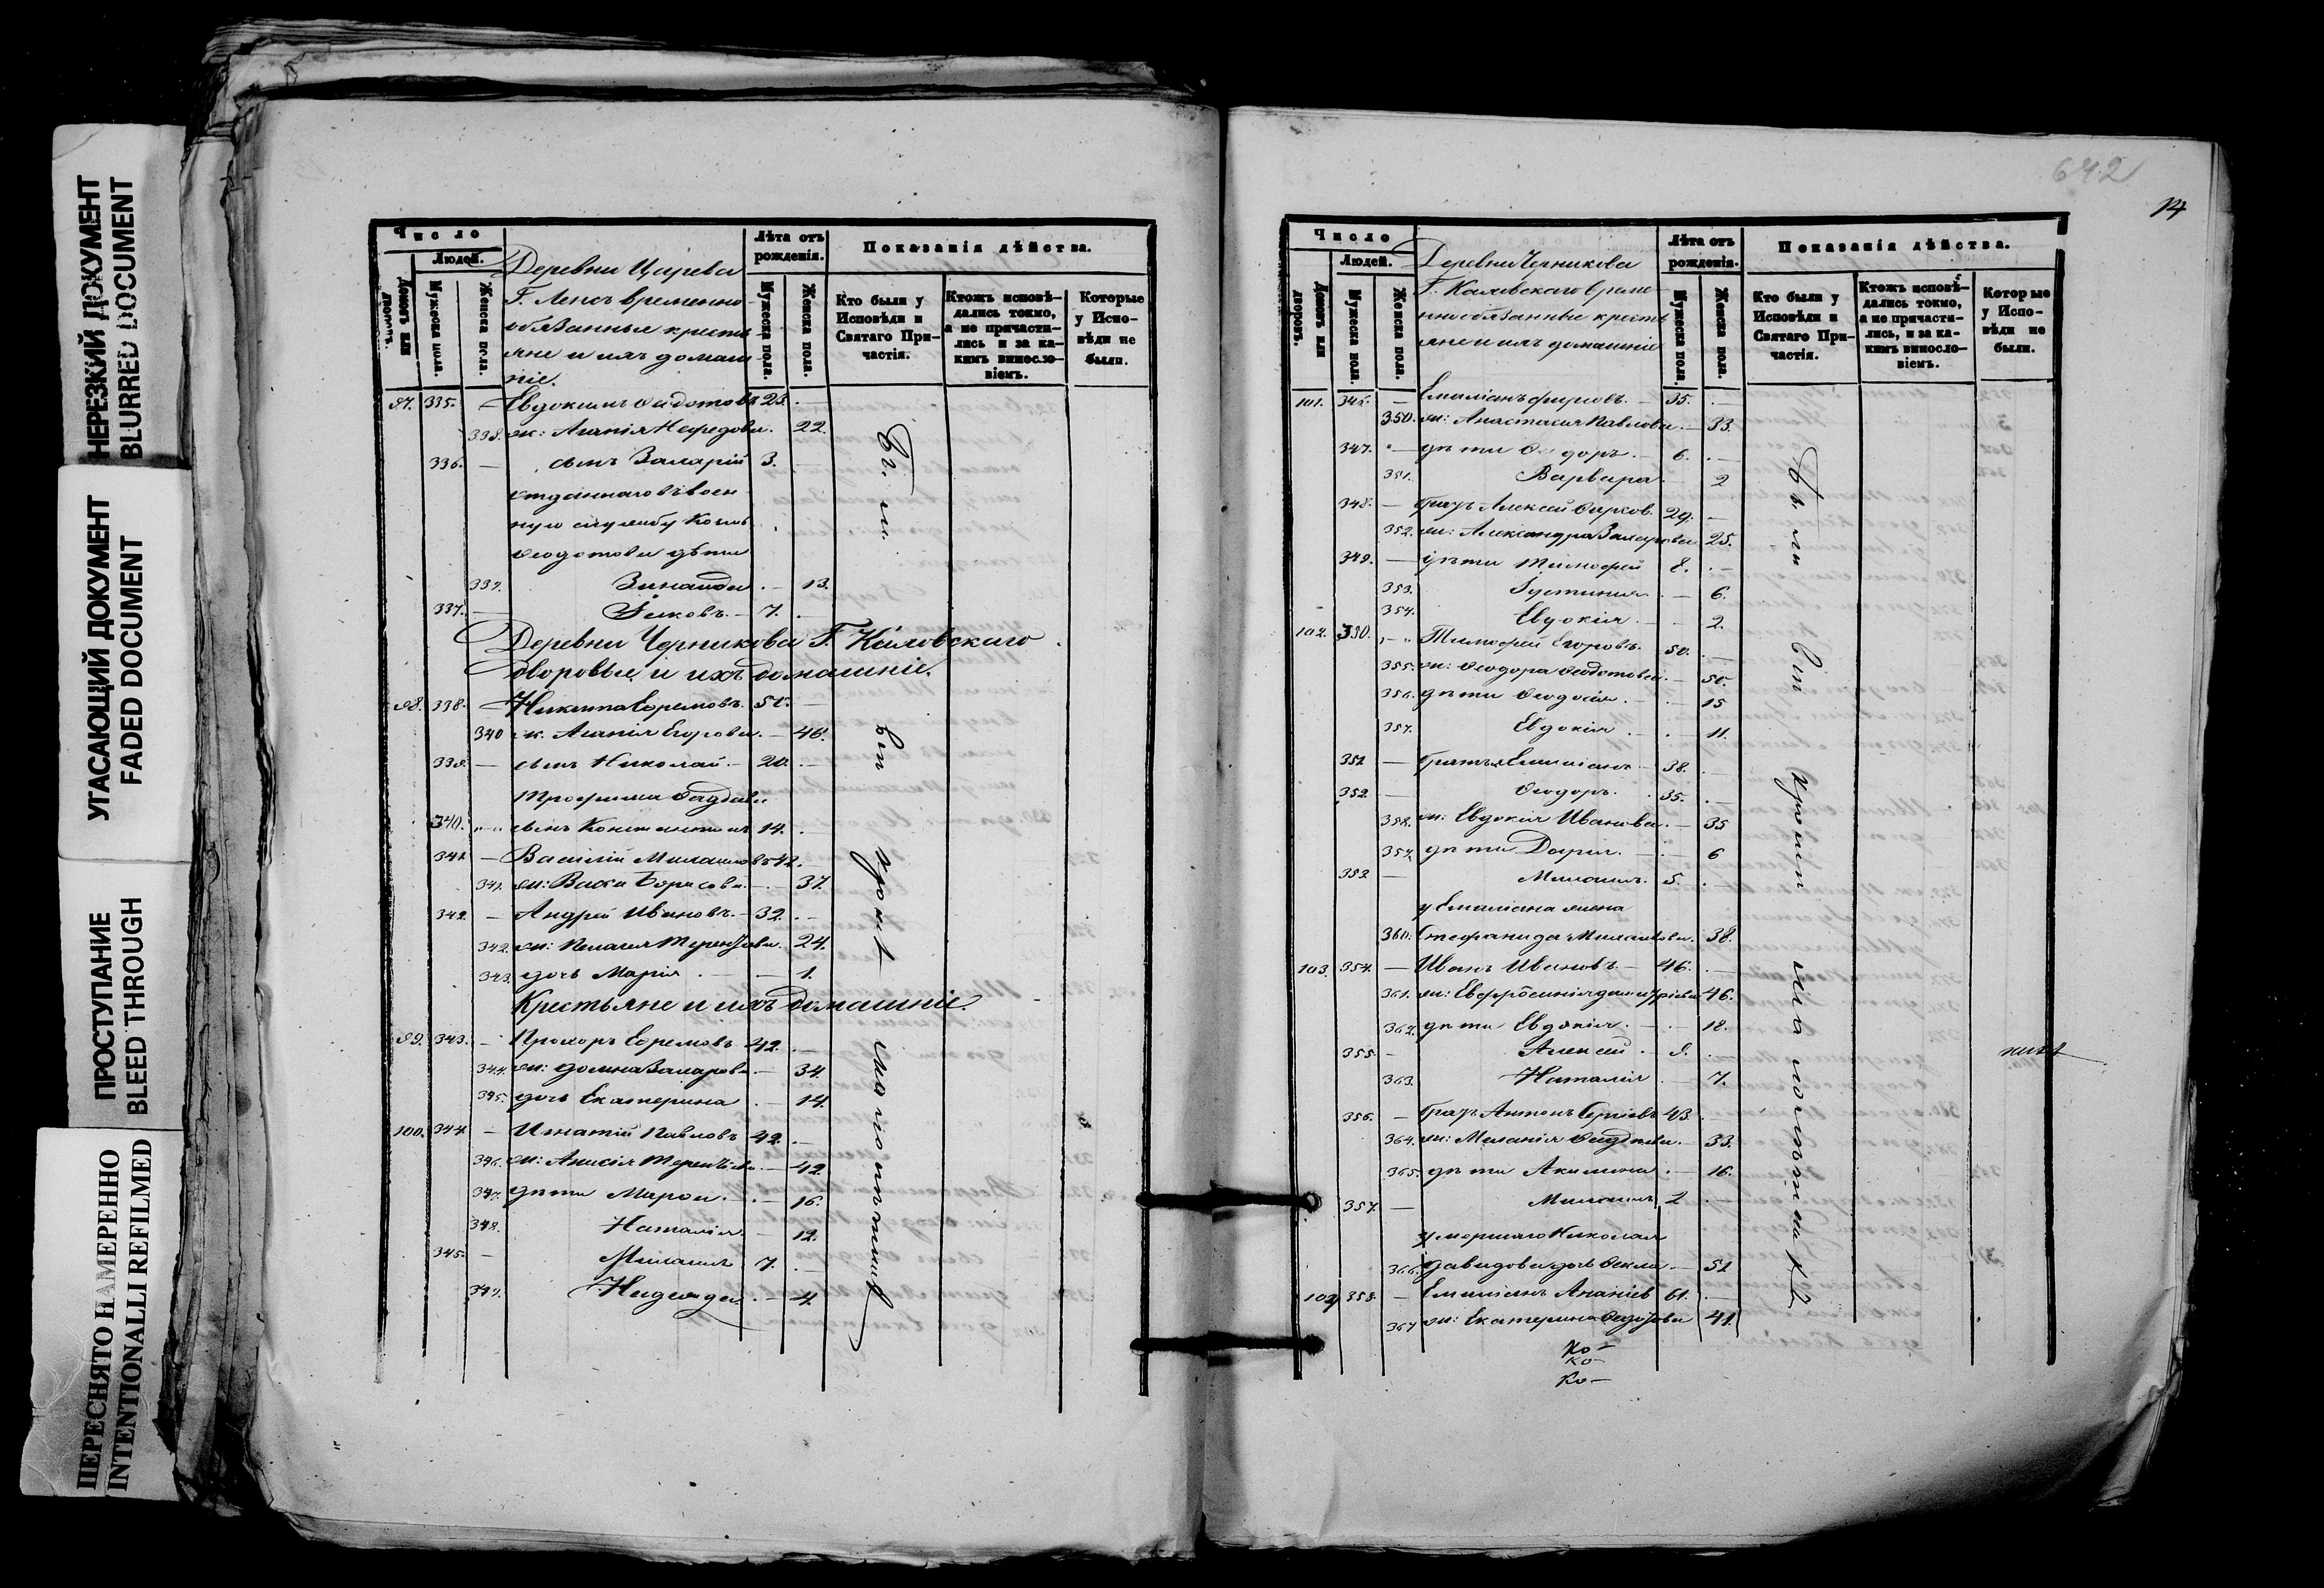 НЕРЕЗКИЙ ДОКУМЕНТ
BLURRED DOCUMENT
УГАСАЮЩИЙ ДОКУМЕНТ
FADED DOCUMENT
ПРОСТУПАНИЕ
BLEED THROUGH
ПЕРЕСНЯТО НАМЕРЕННО
INTENTIONALLI REFILMED
Число
Людей.
Домовъ или дворовъ.
Мужеска пола.
Женска пола.
Деревни Царева
Г. Ленсъ временно
обязанные кресть
яне и ихъ домаш
ніе.
Лѣта отъ рожденія.
Мужеска пола.
Женска пола.
Показанія дѣйства.
Кто были у Исповѣди и Святаго Причастія.
Ктожъ исповѣдались токмо, а не причастились и за какимъ винословіемъ.
Которые у Исповѣди не были.
97. 335. — Евдокимъ Федотовъ 23. —
338. ж: Агапія Нефедова. 22.
336. — сынъ Захарій 3. —
отданнаго въ воен
ную службу Козмы
Феодотова дѣти
339. Зинаида — 13.
337. — Іаковъ. — 7. —
Деревни Черникова Г. Каловскаго
дворовые и ихъ домашніе.
98. 338. — Никита Ефремовъ. 50. —
340 ж. Агапія Егорова. — 46.
339. — сынъ Николай. — 20. —
Трофима
340. сынъ Константинъ 14. —
341. — Василій Михаиловъ 42.
341. ж: Васса Борисова. — 37.
342. — Андрей Ивановъ. — 32. —
342. ж: Пелагея Терентьева. 24.
343. дочь Марія — 1.
Крестьяне и ихъ домашніе.
99. 343. — Прохоръ Ефремовъ 42. —
344. ж: Домна Захарова — 34.
345. дочь Екатерина — 14.
100. 344. — Игнатій Павловъ 42. —
346. ж: Анисія Терентьева — 42.
347. дѣти Марфа — 16.
348. Наталія — 12.
345. — Михаилъ 7. —
349. Надежда — 4.
Были
вси
кромѣ
малолѣтнихъ
642
14
Число
Людей.
Домовъ или дворовъ.
Мужеска пола.
Женска пола.
Деревни Черникова
Г. Каловскаго време
ннообязанные кресть
яне и ихъ домашніе
Лѣта отъ рожденія.
Мужеска пола.
Женска пола.
Показанія дѣйства.
Кто были у Исповѣди и Святаго Причастія.
Ктожъ исповѣдались токмо, а не причастились, и за какимъ винословіемъ.
Которые у Исповѣди не были.
101. 346. — Емиліанъ Фирсовъ. — 35. —
350. ж: Анастасія Павлова — 33.
347. — дѣти Феодоръ — 6. —
351. Варвара — 2
348. — братъ Алексей Фирсов. 29. —
352. ж: Александра Захарова 25.
349. — дѣти Тимофей 8. —
353. Іустинія — 6.
354. Евдокія — 2.
102. 350. Тимофей Егоровъ. 50. —
355. ж: Феодора Федотова — 50.
356. дѣти Феодосія. — 15
357. Евдокія — 11.
351 — братья Емиліанъ — 38. —
352 — Феодоръ. 35. —
358. ж: Евдокія Иванова. — 35
359. дѣти Дарія — 6
352 — Михаилъ. 5. —
у Емиліана жена
360. Стефанида Михаилова. 38.
103. 354. — Иванъ Ивановъ. — 46. —
361. ж: Евфросинія Димитріева 46.
362. дѣти Евдокія. — 18.
355. — Алексей — 9. —
363. Наталія — 7.
356. — братъ Антонъ Сергіевъ 43. —
364. ж: Меланія — 33.
365. дѣти Акилина — 16.
357. — Михаилъ 2 —
умершаго Николая
366. Давидова дочь Фекла — 51
104 358. — Емиліанъ Ананіевъ 61. —
367 ж: Екатерина Федотова 41.
Ко-
Ко-
Ко-
Были
вси
кромѣ
малолѣтнихъ